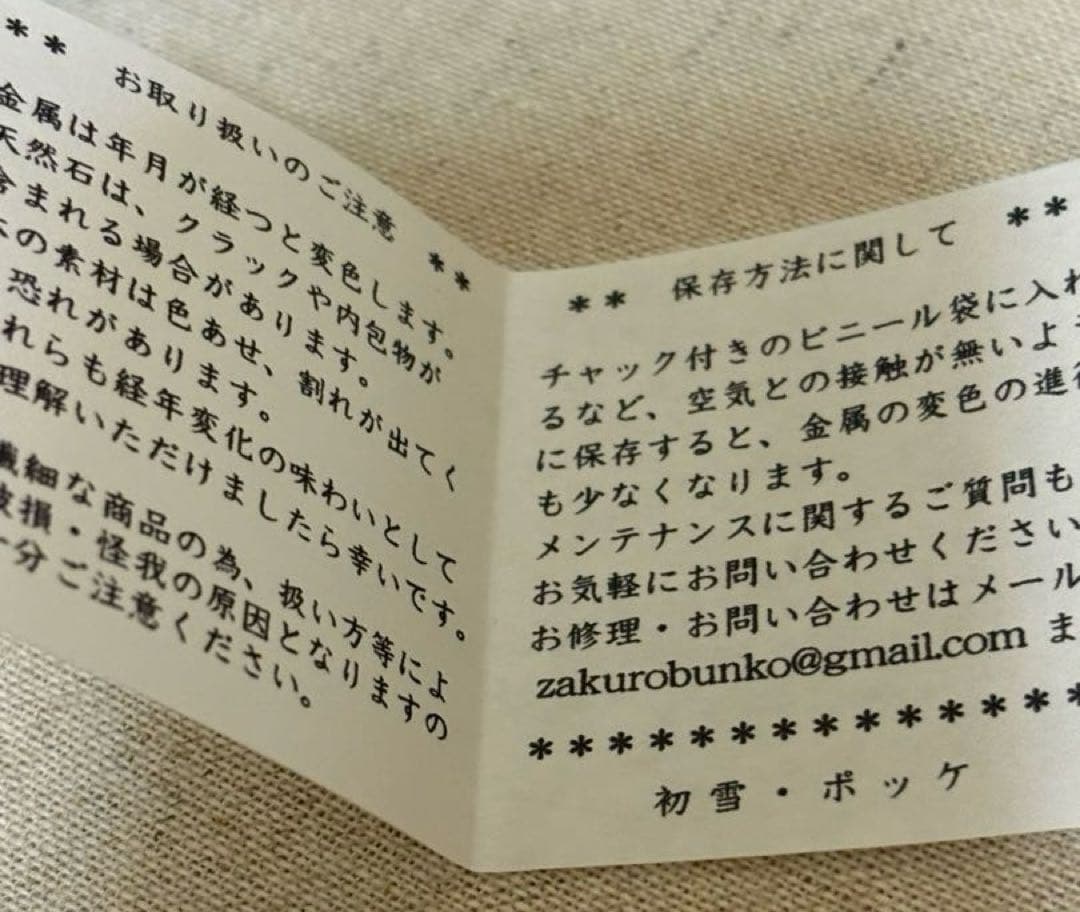 ** お取り扱いのご注意 **
金属は年月が経つと変色します。
天然石は、クラックや内包物が
含まれる場合があります。
の素材は色あせ、割れが出てく
恐れがあります。
れらも経年変化の味わいとして
理解いただけましたら幸いです。
繊細な商品の為、扱い方等によ
破損・怪我の原因となりますの
十分ご注意ください。
** 保存方法に関して **
チャック付きのビニール袋に入れ
るなど、空気との接触が無いよう
に保存すると、金属の変色の進行
も少なくなります。
メンテナンスに関するご質問も
お気軽にお問い合わせください
お修理・お問い合わせはメール
zakurobunko@gmail.com ま
**************
初雪・ポッケ